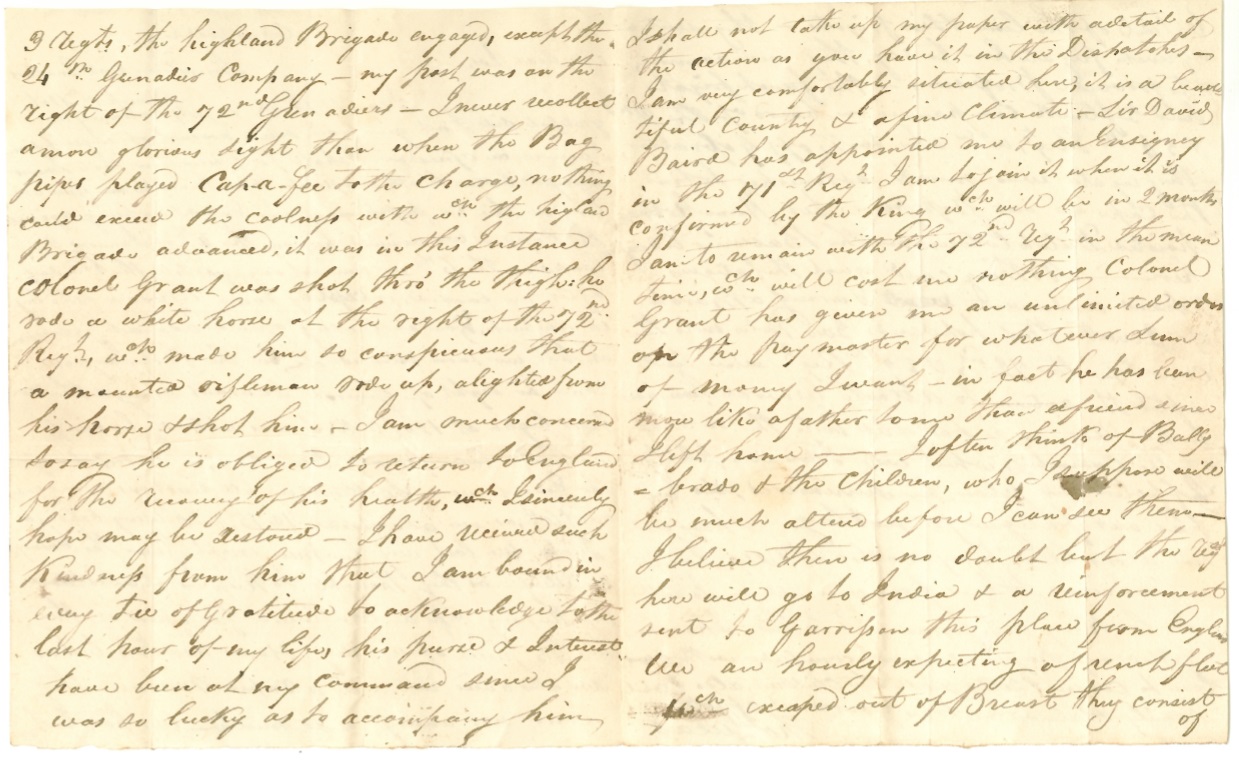 3 regts, the highland Brigade engaged, except the
24th Grenadier Company – my post was on the
right of the 72nd Grenadiers – I never recollect
a more glorious sight than when the Bag
pipes played Cap-a-fee to the Charge, nothing
could exceed the coolness with wch the highland
Brigade advanced, it was in this Instance
Colonel Grant was shot thro' the thigh: he
rode a white horse at the right of the 72nd
Regt, wch made him so conspicuous that
a mounted rifleman rode up, alighted from
his horse & shot him – I am much concerned
to say he is obliged to return to England
for the recovery of his health, wch I sincerely
hope may be restored – I have received such
Kindness from him that I am bound in
every tie of Gratitude to acknowledge to the
last hour of my life, his purse & Interest
have been at my command since I
was so lucky as to accompany him
I shall not take up my paper with a detail of
the action as you have it in the Dispatches –
I am very comfortably situated here, it is a beau
tiful County & a fine Climate – Sir David
Baird has appointed me to an Ensigncy
in the 71st Regt I am to join it when it is
confirmed by the King wch will be in 2 months
I am to remain with the 72nd regt in the mean
time, wch will cost me nothing Colonel
Grant has given me an unlimited order
on the paymaster for whatever sum
of money I want – in fact he has been
more like a father to me than a friend since
I left home —— I often think of Bally
= brado & the Children, who I suppose will
be much altered before I can see them –
I believe there is no doubt but the regt
here will go to India & a reinforcement
sent to Garrison this place from England
we are hourly expecting a french fleet
wch escaped out of Breast they consist
of